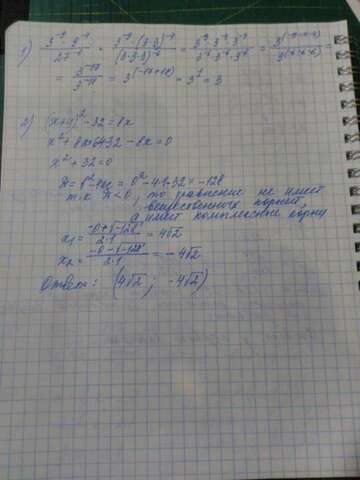 1) \frac{3^{-9} \cdot 9^{-4}}{27^{-6}} = \frac{3^{-9} \cdot (3 \cdot 3)^{-4}}{(3 \cdot 3 \cdot 3)^{-6}} = \frac{3^{-9} \cdot 3^{-4} \cdot 3^{-4}}{3^{-6} \cdot 3^{-6} \cdot 3^{-6}} = \frac{3^{(-9-4-4)}}{3^{(-6-6-6)}} =
= \frac{3^{-17}}{3^{-18}} = 3^{(-17+18)} = 3^1 = 3
2) (x+4)^2 - 32 = 8x
x^2 + 32 = 0
D = b^2 - 4ac = 0^2 - 4·1·32 = -128
т.к D < 0, то уравнение не имеет
вещественных корней,
а имеет комплексные корни
x_1 = \frac{-0+\sqrt{-128}}{2·1} = 4\sqrt{2}
x_2 = \frac{-0-\sqrt{-128}}{2·1} = -4\sqrt{2}
Ответ: (4\sqrt{2}; -4\sqrt{2})